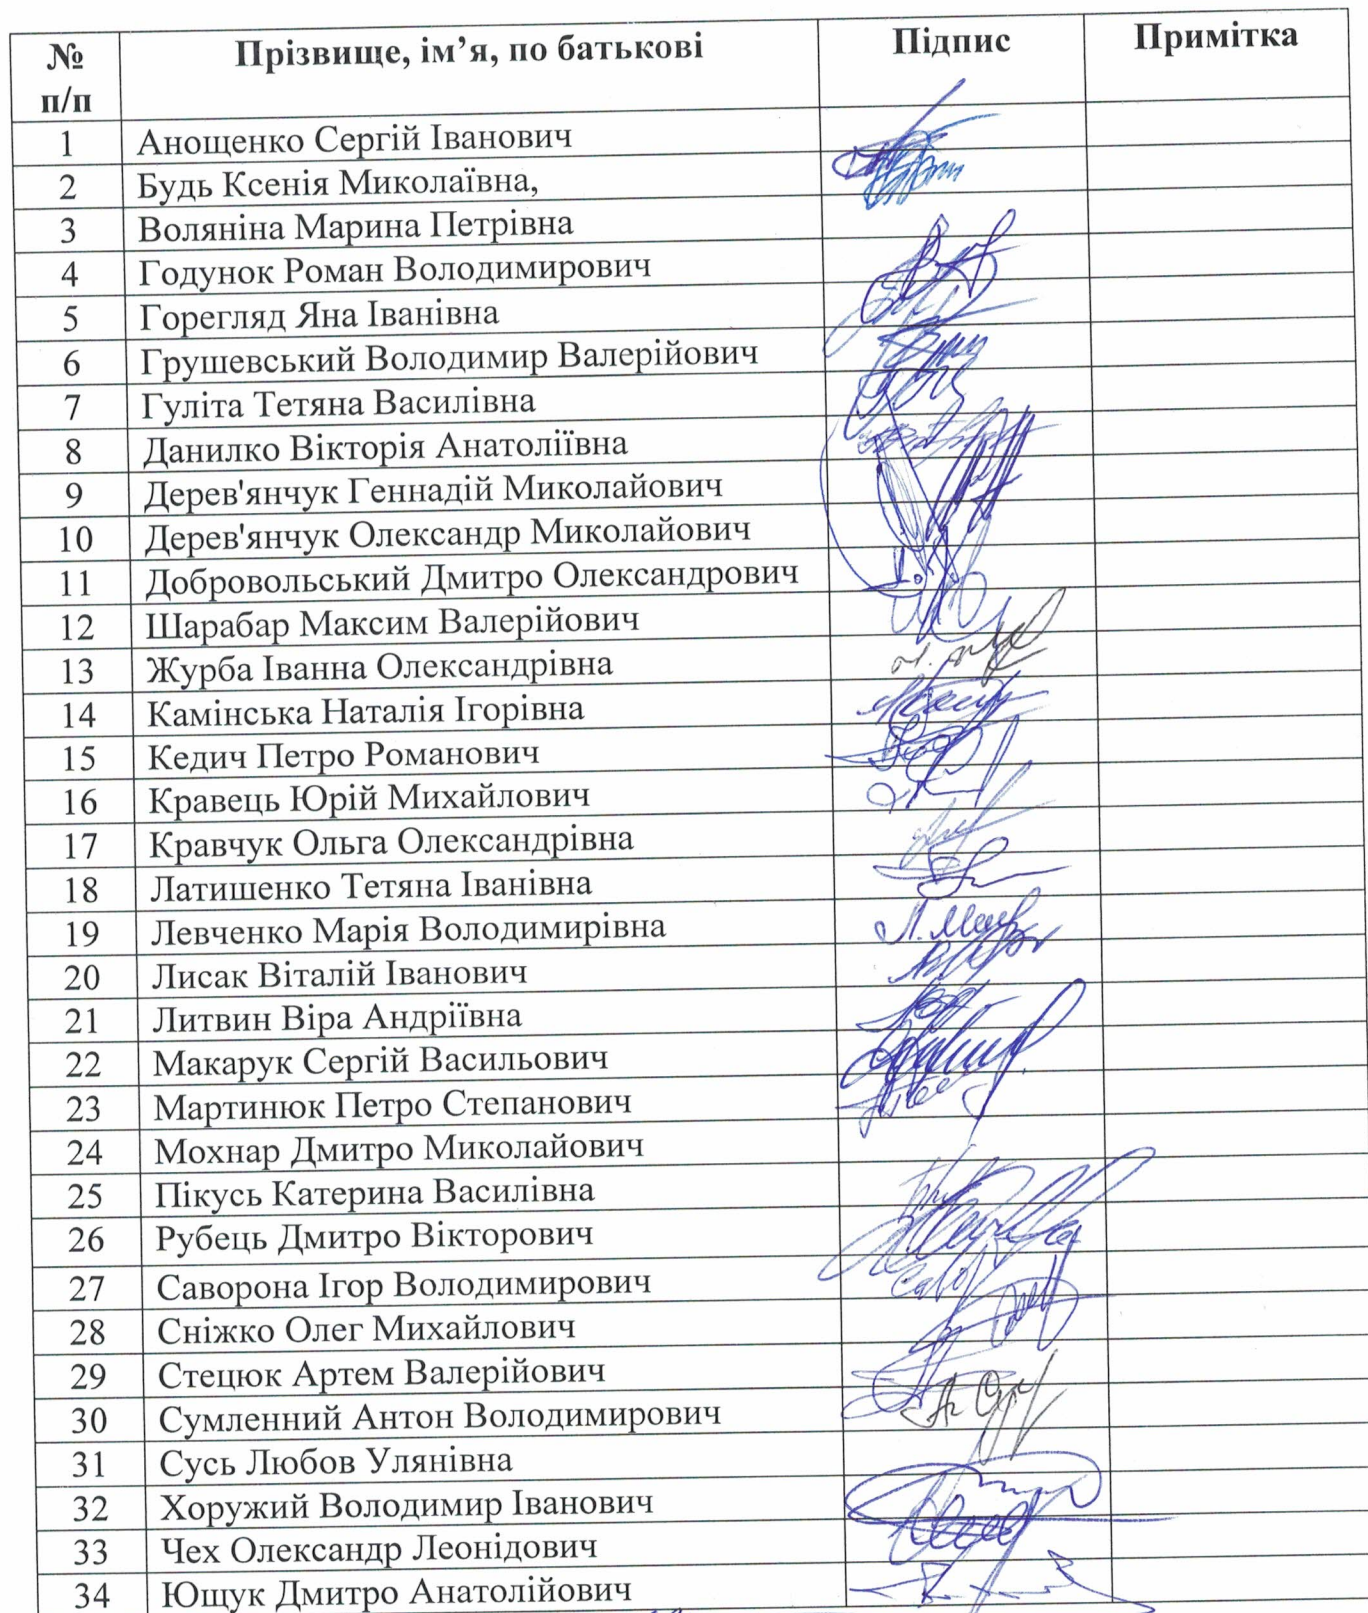 № п/п Прізвище, ім’я, по батькові Підпис Примітка
1 Анощенко Сергій Іванович
2 Будь Ксенія Миколаївна,
3 Воляніна Марина Петрівна
4 Годунок Роман Володимирович
5 Горегляд Яна Іванівна
6 Грушевський Володимир Валерійович
7 Гуліта Тетяна Василівна
8 Данилко Вікторія Анатоліївна
9 Дерев'янчук Геннадій Миколайович
10 Дерев'янчук Олександр Миколайович
11 Добровольський Дмитро Олександрович
12 Шарабар Максим Валерійович
13 Журба Іванна Олександрівна
14 Камінська Наталія Ігорівна
15 Кедич Петро Романович
16 Кравець Юрій Михайлович
17 Кравчук Ольга Олександрівна
18 Латишенко Тетяна Іванівна
19 Левченко Марія Володимирівна
20 Лисак Віталій Іванович
21 Литвин Віра Андріївна
22 Макарук Сергій Васильович
23 Мартинюк Петро Степанович
24 Мохнар Дмитро Миколайович
25 Пікусь Катерина Василівна
26 Рубець Дмитро Вікторович
27 Саворона Ігор Володимирович
28 Сніжко Олег Михайлович
29 Стецюк Артем Валерійович
30 Сумленний Антон Володимирович
31 Сусь Любов Улянівна
32 Хоружий Володимир Іванович
33 Чех Олександр Леонідович
34 Ющук Дмитро Анатолійович